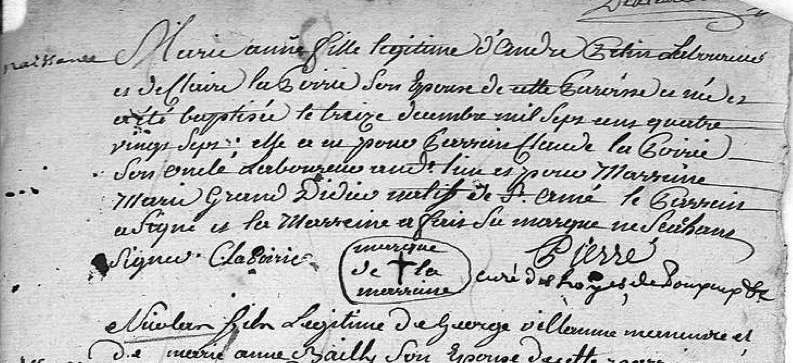 naissance
Marie anne fille legitime d'andré Laboureur
et de Claire la Poirie son Epouse de cette Paroisse es née et
a été baptisée le treize decembre mil sept cens quatre
vingt sept: elle a eu pour Parrein Claude la Poirie
son oncle Laboureur aud. lieu et pour Marreine
Marie Grand Didier natif de St. amé le Parrein
a signé et la Marreine a fait sa marque ne Scachant
signer. C laPoirie
marque
de la
marraine
Pierré
curé des hayes de Pouxeux &c
Nicolas fils Legitime de George villaume manuvre et
de marie anne Bailly son Epouse de cette